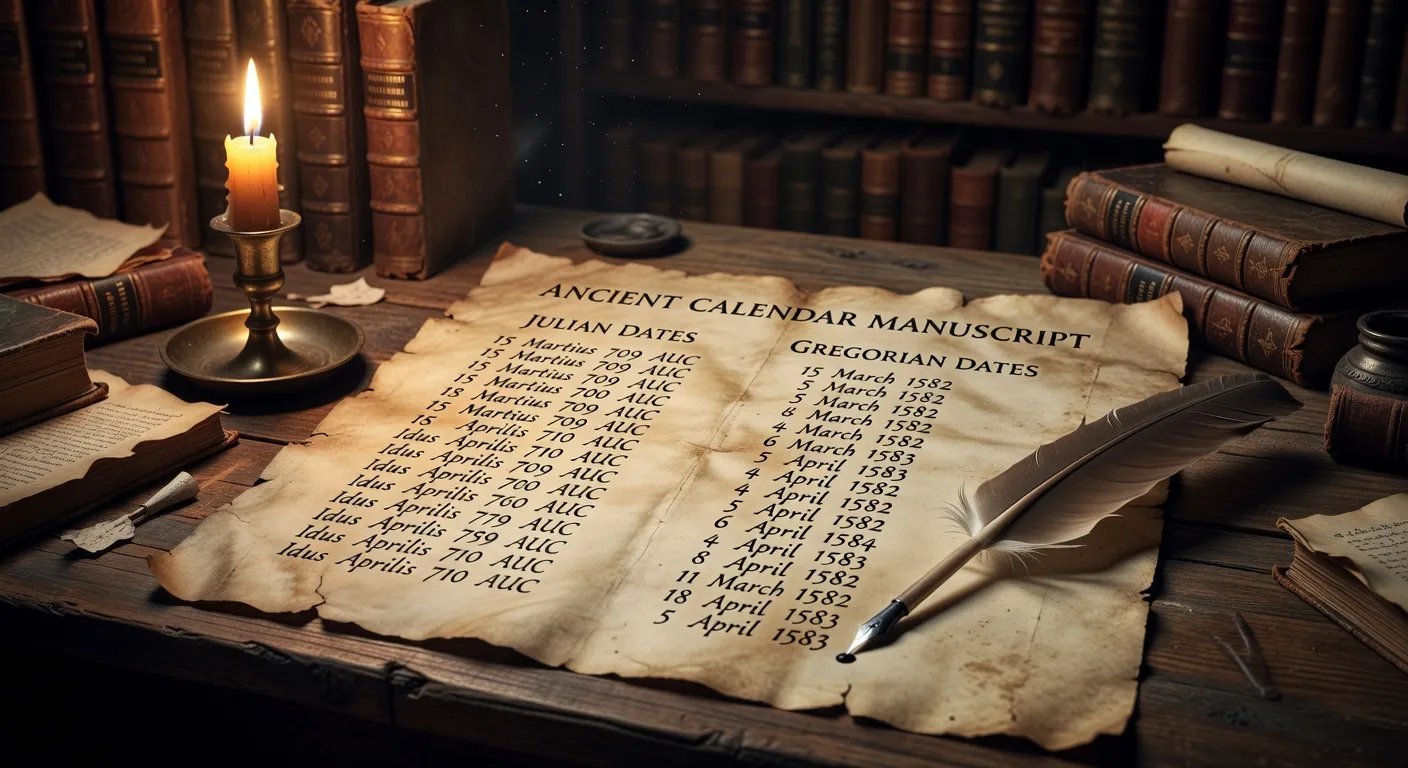 ANCIENT CALENDAR MANUSCRIPT
JULIAN DATES
15 Martius 709 AUC
15 Martius 709 AUC
15 Martius 700 AUC
18 Martius 709 AUC
15 Martius 709 AUC
15 Aprilis 710 AUC
Idus Aprilis 709 AUC
Idus Aprilis 700 AUC
Idus Aprilis 760 AUC
Idus Aprilis 779 AUC
Idus Aprilis 759 AUC
Idus Aprilis 710 AUC
Idus Aprilis 710 AUC
GREGORIAN DATES
15 March 1582
5 March 1582
8 March 1582
4 March 1582
6 March 1583
5 April 1583
4 April 1582
4 April 1582
5 April 1584
6 April 1583
4 April 1582
8 April 1582
11 March 1582
18 April 1583
5 April 1583